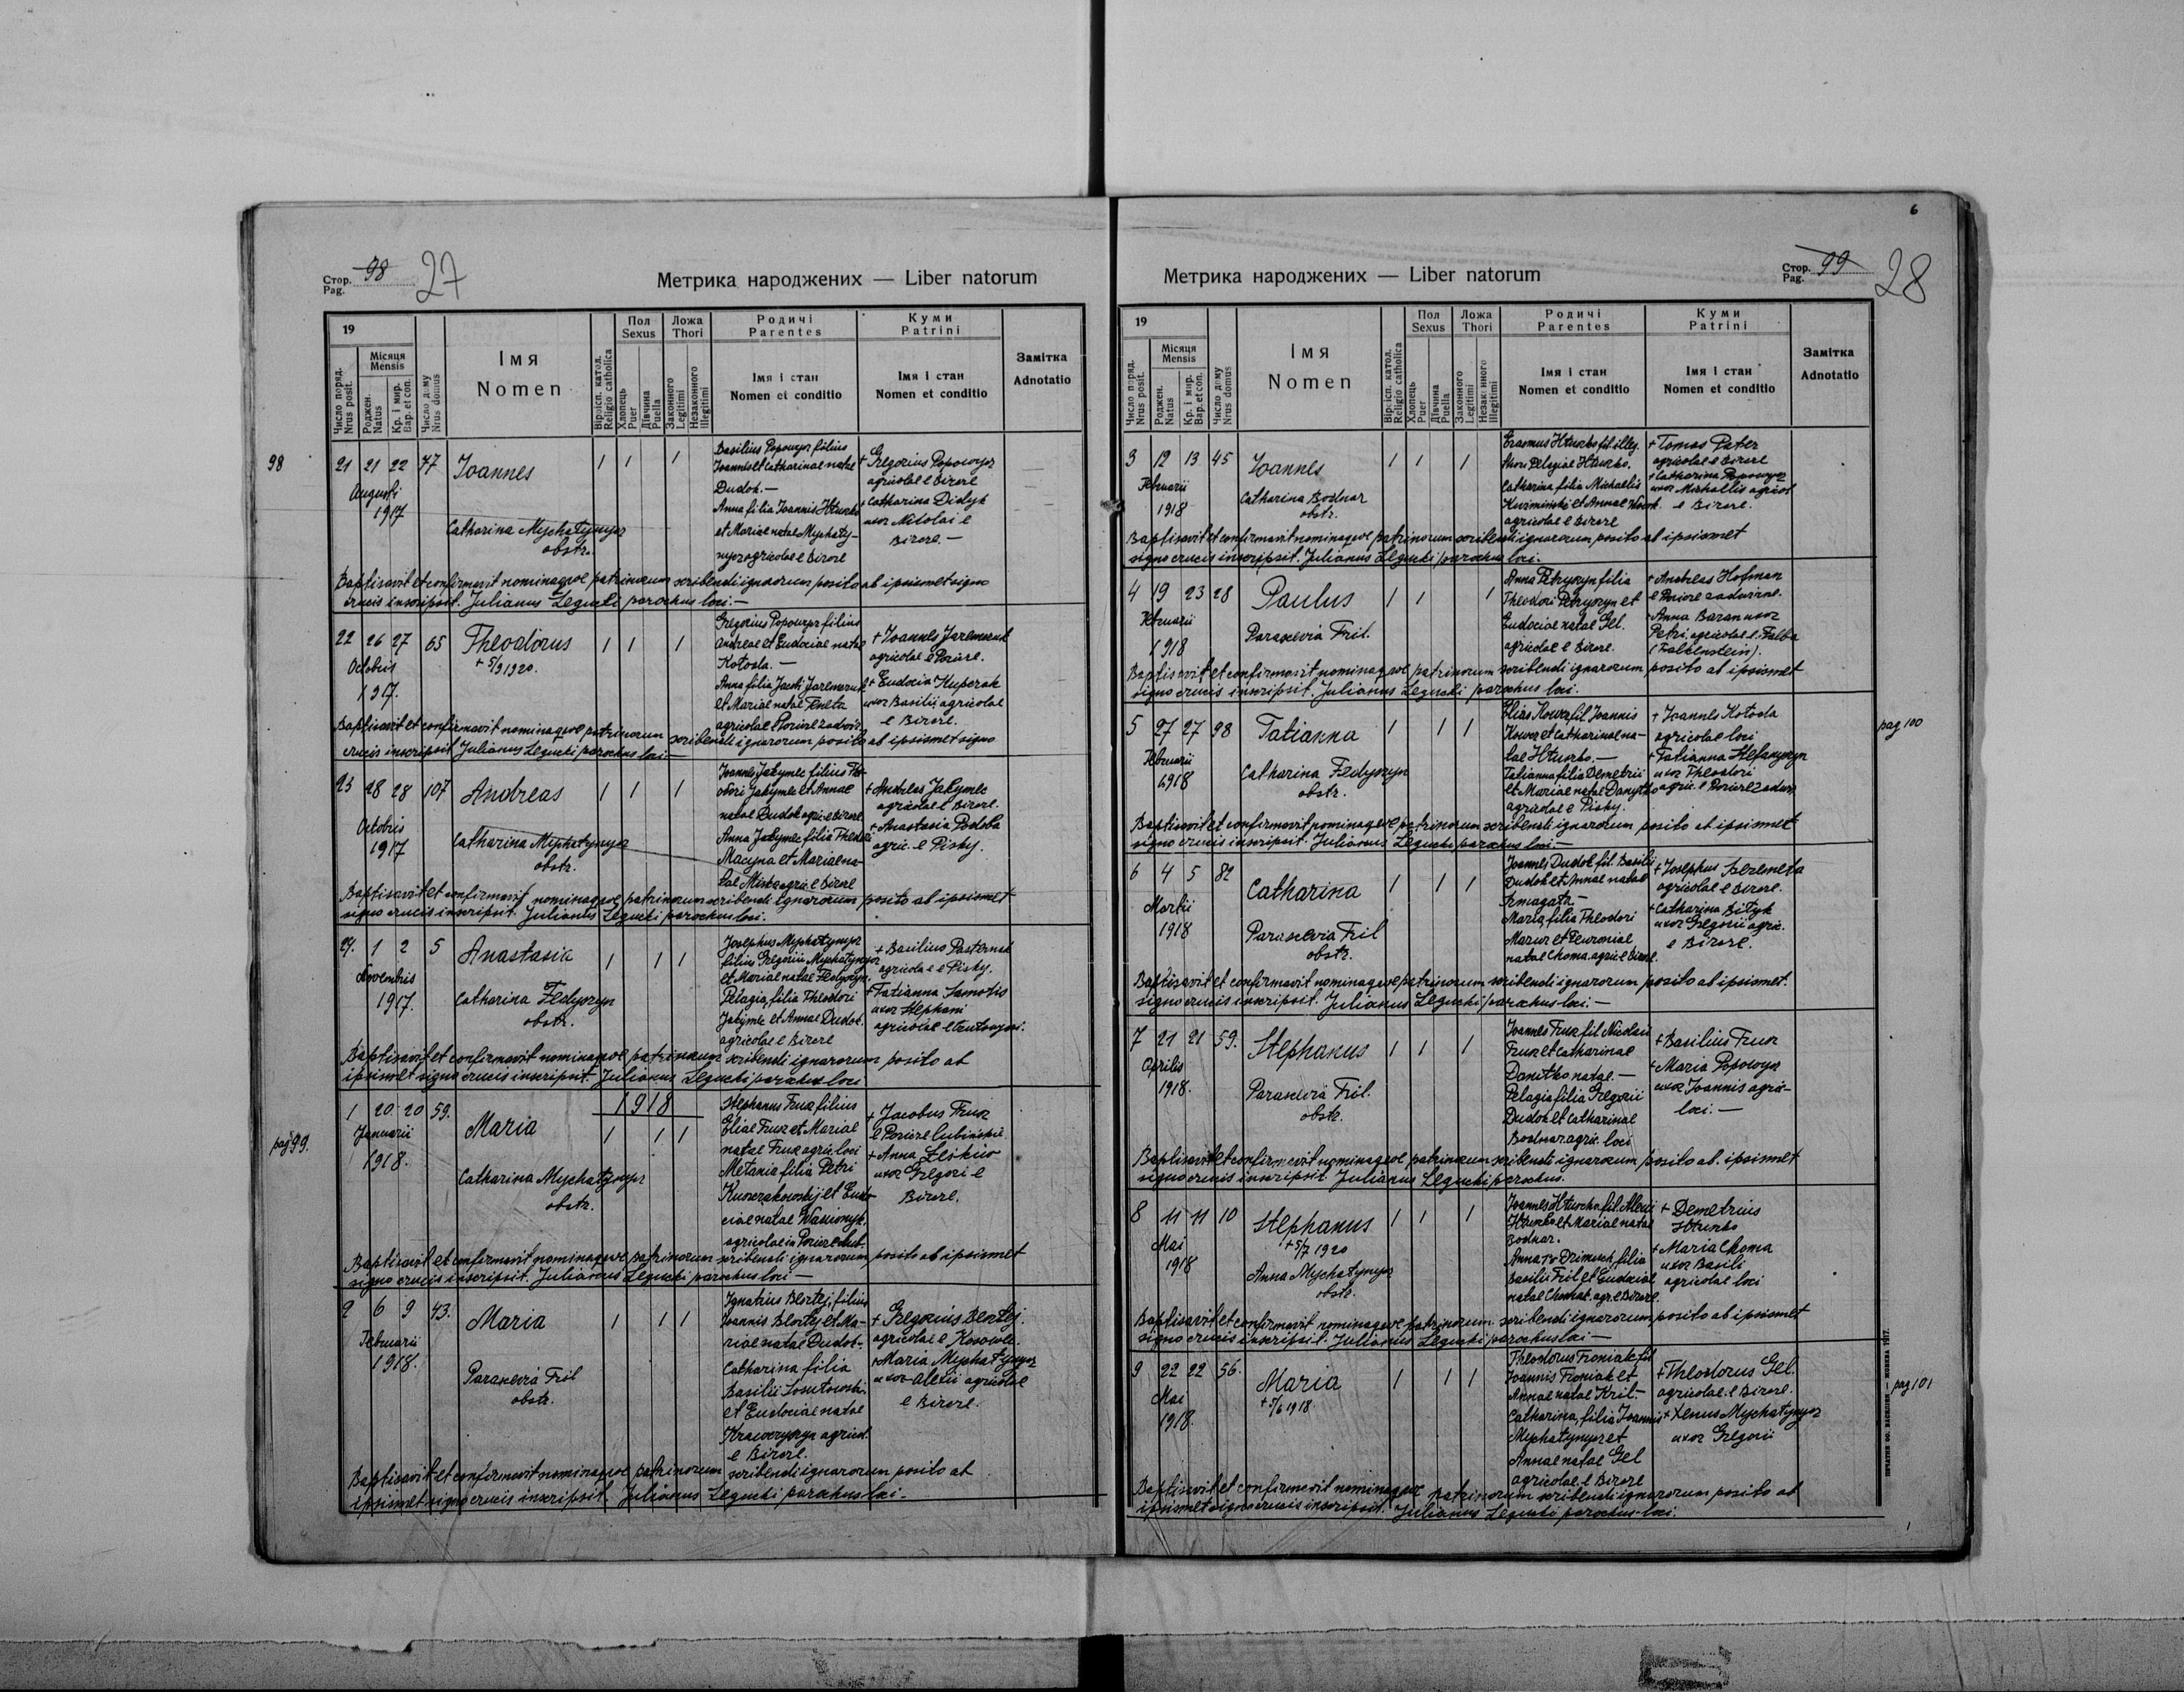 Стор. 98
Pag.
27
Метрика народжених — Liber natorum
19
Число поряд.
Nrus posit.
Місяця
Mensis
Роджен.
Natus
Кр. і мир.
Bap. et con.
Число дому
Nrus domus
Імя
Nomen
Віроісп. катол.
Religio catholica
Пол
Sexus
Хлопець
Puer
Дівчина
Puella
Ложа
Thori
Законного
Legitimi
Незаконного
illegitimi
Родичі
Parentes
Імя і стан
Nomen et conditio
Куми
Patrini
Імя і стан
Nomen et conditio
Замітка
Adnotatio
98
21 21 22 77 Joannes 1 1 1
Augusti
1917
Catharina Mychatynycz
obstr.
Basilius Popowycz filius
Joannis et Catharinae natae
Dudok. —
Anna filia Joannis Hłuszko
et Mariae natae Mychaty-
nycz agricolae e Birczе
+ Gregorius Popowycz
agricolae e Bircze
+ Catharina Didyk
uxor Nikolai e
Bircze. —
Baptisavit et confirmavit nominaque patrinorum scribendi ignarorum posito ab ipsismet signo
crucis inscripsit. Julianus Łegucki parochus loci. —
22 26 27 65 Theodorus 1 1 1
+ 5/9 1920.
Octobris
1917.
Gregorius Popowycz filius
Andreae et Eudociae natae
Kotosla. —
Anna filia Jacobi Jaremczuk
et Mariae natae Feneta
+ Joannes Jaremczuk
+ Eudocia Kuperak
uxor Basilii agricolae
e Bircze.
Baptisavit et confirmavit nominaque patrinorum scribendi ignarorum posito ab ipsismet signo
crucis inscripsit. Julianus Łegucki parochus loci. —
23 28 28 107 Andreas 1 1 1
Octobris
1917
Catharina Mychatynycz
obstr.
Joannes Jakymec filius The-
odori Jakymec et Annae
natae Dudok agric. e Bircze
Anna Jakymec filia Theodori
Macyna et Mariae na-
+ Andreas Jakymec
agricolae e Bircze.
+ Anastasia Podoba
agric. e Pisky.
Baptisavit et confirmavit nominaque patrinorum scribendi ignarorum, posito ab ipsismet
signo crucis inscripsit. Julianus Łegucki parochus loci.
24. 1 2 5 Anastasia 1 1 1
Novembris
1917.
Catharina Fedyszyn
obstr.
Josephus Mychatynycz
filius Gregorii Mychatynycz
et Mariae natae Fedyszyn.
Pelagia, filia Theodori
Jakymec et Annae Dudok.
agricolae e Bircze
+ Basilius Pasternak
agricola e Pisky.
+ Tatianna Samotis
uxor Stephani
Baptisavit et confirmavit nominaque patrinorum scribendi ignarorum posito ab
ipsismet signo crucis inscripsit. Julianus Łegucki parochus loci
1918
pag 99.
1 20 20 59. Maria 1 1 1
Januarii
1918.
Catharina Mychatynycz
obstr.
Stephanus Fruz filius
Eliae Fruz et Mariae
natae Fruz agric. loci
Metania filia Petri
+ Jacobus Fruz
+ Anna Łeskiw
uxor Gregori e
Bircze.
Baptisavit et confirmavit nominaque patrinorum scribendi ignarorum, posito ab ipsismet
signo crucis inscripsit. Julianus Łegucki parochus loci —
2 6 9 43. Maria 1 1 1
Februarii
1918.
Parascevia Fril
obstr.
Ignatius Berlej, filius
Joannis Berlej et Ma-
riae natae Dudok.
Catharina filia
Basilii
et Eudociae natae
e Bircze.
+ Gregorius Berlej.
agricolae e
+ Maria Mychatynycz
uxor Alexii agricolae
e Bircze.
Baptisavit et confirmavit nominaque patrinorum scribendi ignarorum posito ab
ipsismet signo crucis inscripsit. Julianus Łegucki parochus loci. —
6
Метрика народжених — Liber natorum
Стор. 99
Pag.
28
19
Число поряд.
Nrus posit.
Місяця
Mensis
Роджен.
Natus
Кр. і мир.
Bap. et con.
Число дому
Nrus domus
Імя
Nomen
Віроісп. катол.
Religio catholica
Пол
Sexus
Хлопець
Puer
Дівчина
Puella
Ложа
Thori
Законного
Legitimi
Незаконного
illegitimi
Родичі
Parentes
Імя і стан
Nomen et conditio
Куми
Patrini
Імя і стан
Nomen et conditio
Замітка
Adnotatio
3 12 13 45 Joannes 1 1 1
Februarii
1918
Catharina Bodnar
obstr.
Erasmus Hłuszko fil. illeg.
Pelagiae Hłuszko.
Catharina filia Michaelis
agricolae e Bircze
+ Tomas Pater
agricolae e Bircze
+ Catharina Popowycz
uxor Michaelis agricol.
e Bircze.
Baptisavit et confirmavit nominaque patrinorum scribendi ignarorum posito ab ipsismet
signo crucis inscripsit. Julianus Łegucki parochus loci.
4 19 23 28 Paulus 1 1 1
Februarii
1918
Parascevia Fril.
Anna Petryszyn filia
Theodori Petryszyn et
Eudociae natae Gel.
agricolae e Bircze.
+ Andreas Hofman
+ Anna Baran uxor
Petri, agricolae e Falba
(Falkenstein).
Baptisavit et confirmavit nominaque patrinorum scribendi ignarorum posito ab ipsismet
signo crucis inscripsit. Julianus Łegucki parochus loci.
pag 100
5 27 27 98 Tatianna 1 1 1
Februarii
1918
Catharina Fedyszyn
obstr.
Elias Kower fil. Joannis
Kower et Catharinae na-
tae Hłuszko. —
Tatianna filia Demetrii
et Mariae natae Danyłko
agricolae e Pisky.
+ Joannes Kotosla
agricolae loci
+ Tatianna Stefanyszyn
uxor Theodori
Baptisavit et confirmavit nominaque patrinorum scribendi ignarorum, posito ab ipsismet
signo crucis inscripsit. Julianus Łegucki parochus loci. —
6 4 5 82 Catharina 1 1 1
Martii
1918
Parascevia Fril
obstr.
Joannes Dudok fil. Basilii
Dudok et Annae natae
Maria, filia Theodori
Mazur et Fewroniae
natae Choma. agric. e Bircze.
+ Josephus Szeremeta
agricolae e Bircze.
+ Catharina Bityk
uxor Gregorii agric.
e Bircze.
Baptisavit et confirmavit nominaque patrinorum scribendi ignarorum, posito ab ipsismet.
signo crucis inscripsit. Julianus Łegucki parochus loci. —
7 21 21 59. Stephanus 1 1 1
Aprilis
1918.
Parascevia Fril.
obstr.
Joannes Fruz fil. Nicolai
Fruz et Catharinae
Danitko natae. —
Pelagia filia Gregorii
Dudok et Catharinae
Bodnar agric. loci
+ Basilius Fruz
+ Maria Popowycz
uxor Joannis agric-
loci. —
Baptisavit et confirmavit nominaque patrinorum scribendi ignarorum, posito ab. ipsismet
signo crucis inscripsit. Julianus Łegucki parochus.
8 11 11 10 Stephanus 1 1 1
+ 5/7 1920
Mai
1918
Anna Mychatynycz
obstr.
Joannes Hłuszko fil. Alexii
Hłuszko et Mariae natae
Bodnar.
filia
Basilii Fril et Eudociae
+ Demetrius
Hłuszko
+ Maria Choma
uxor Basili
agricolae loci
Baptisavit et confirmavit nominaque patrinorum scribendi ignarorum posito ab ipsismet
signo crucis inscripsit. Julianus Łegucki parochus loci —
9 22 22 56. Maria 1 1 1
+ 5/6 1918.
Mai
1918.
Theodorus Froniak fil
Joannis Froniak et
Annae natae Kril. —
Catharina, filia Joannis
Mychatynycz et
Annae natae Gel
agricolae. e Bircze
+ Theodorus Gel.
agricolae. e Bircze.
+ Xenus Mychatynycz
uxor Gregorii
pag 101
Baptisavit et confirmavit nominaque patrinorum scribendi ignarorum posito ab
ipsismet signo crucis inscripsit. Julianus Łegucki parochus loci.